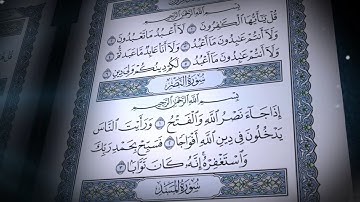 بِسْمِ اللَّهِ الرَّحْمَٰنِ الرَّحِيمِ
قُلْ يَٰٓأَيُّهَا ٱلْكَٰفِرُونَ ١ لَآ أَعْبُدُ مَا تَعْبُدُونَ ٢
وَلَآ أَنتُمْ عَٰبِدُونَ مَآ أَعْبُدُ ٣ وَلَآ أَنَا۠ عَابِدٌ مَّا عَبَدتُّمْ ٤
وَلَآ أَنتُمْ عَٰبِدُونَ مَآ أَعْبُدُ ٥ لَكُمْ دِينُكُمْ وَلِىَ دِينِ ٦
سُورَةُ النَّصْرِ
بِسْمِ اللَّهِ الرَّحْمَٰنِ الرَّحِيمِ
إِذَا جَآءَ نَصْرُ ٱللَّهِ وَٱلْفَتْحُ ١ وَرَأَيْتَ ٱلنَّاسَ
يَدْخُلُونَ فِى دِينِ ٱللَّهِ أَفْوَاجًا ٢ فَسَبِّحْ بِحَمْدِ رَبِّكَ
وَٱسْتَغْفِرْهُ إِنَّهُۥ كَانَ تَوَّابًۢا ٣
سُورَةُ المَسَدِ